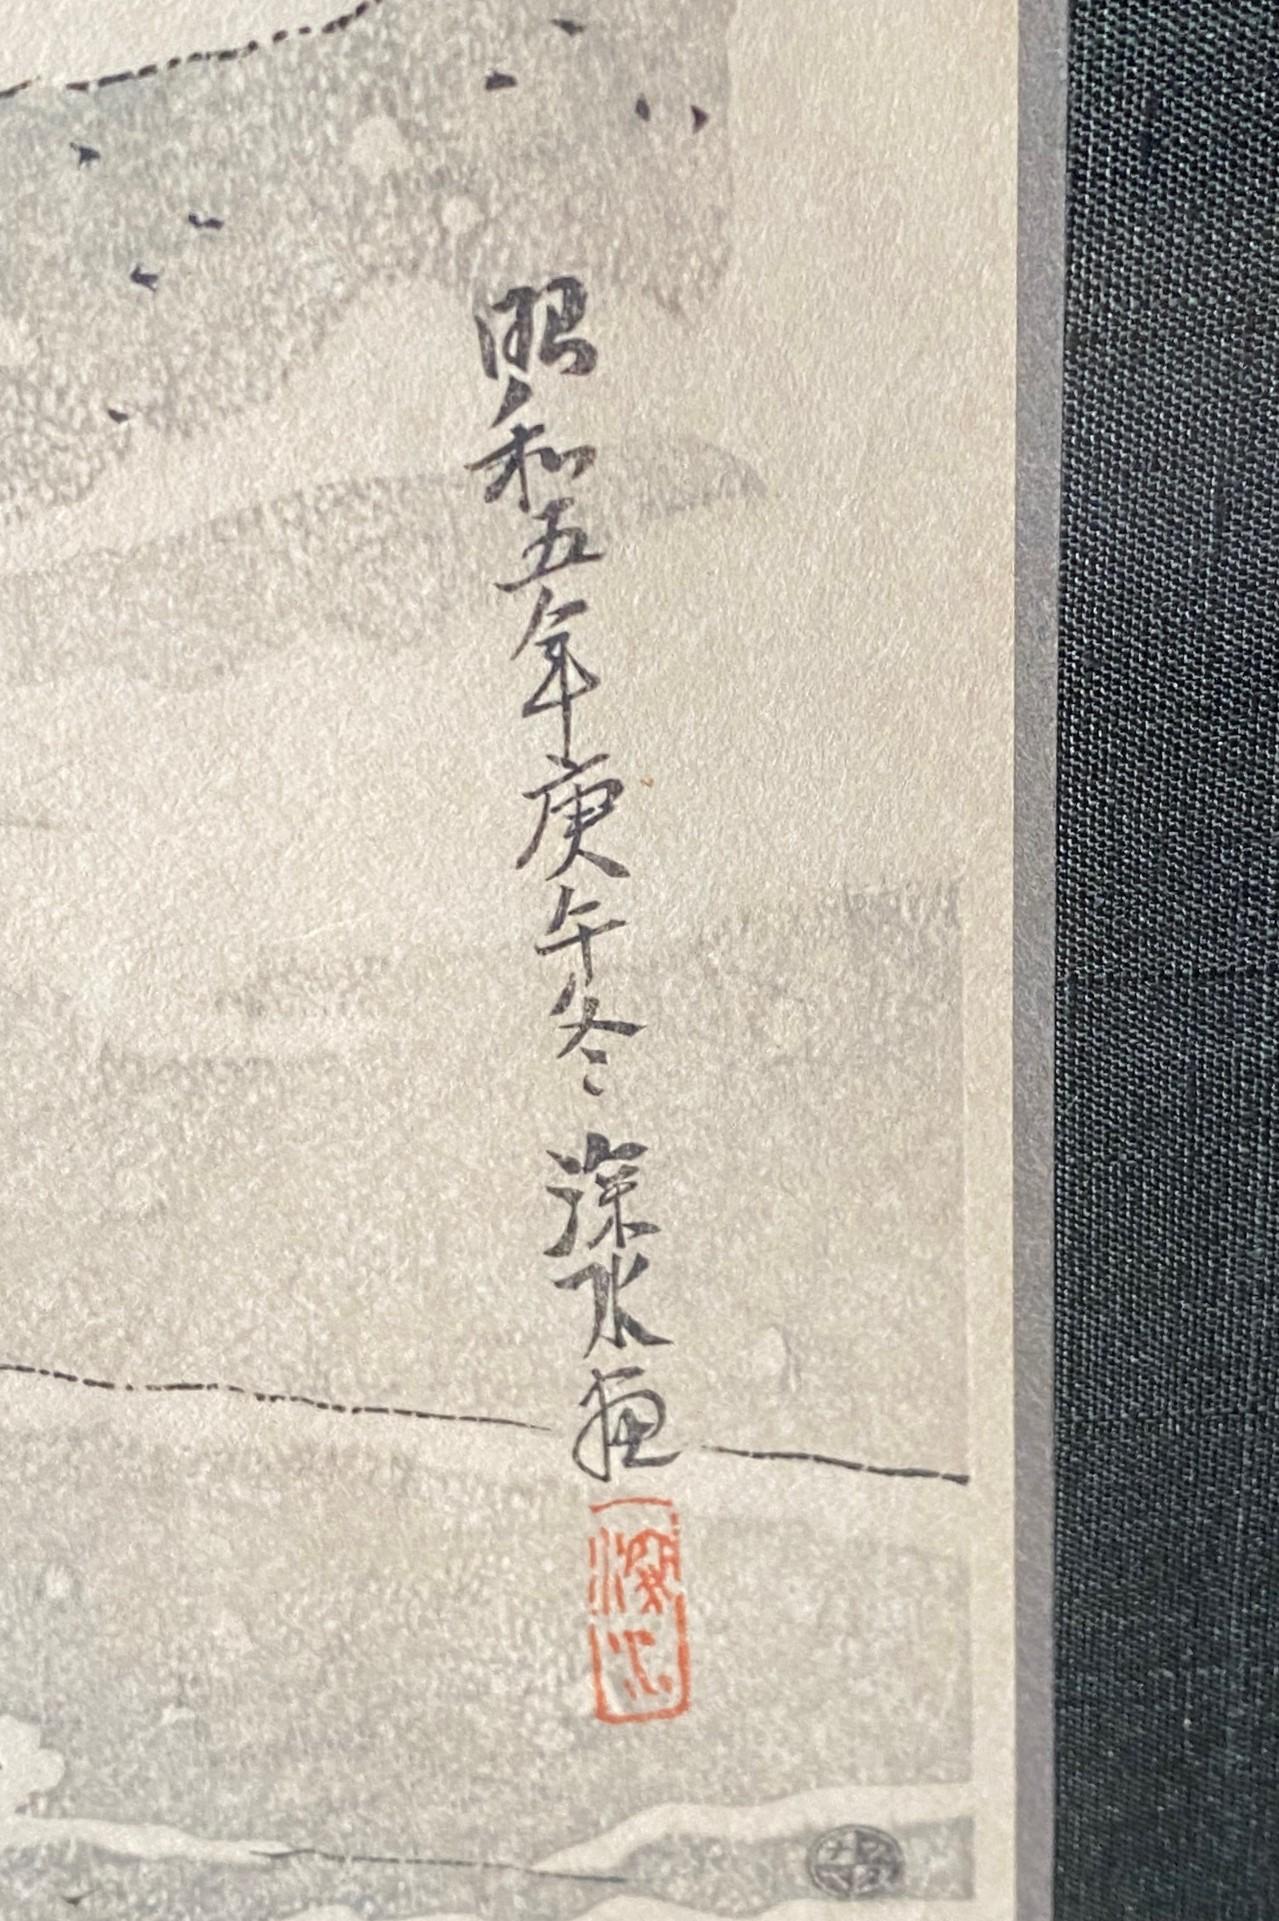 昭和五年庚午冬 深水画
深水